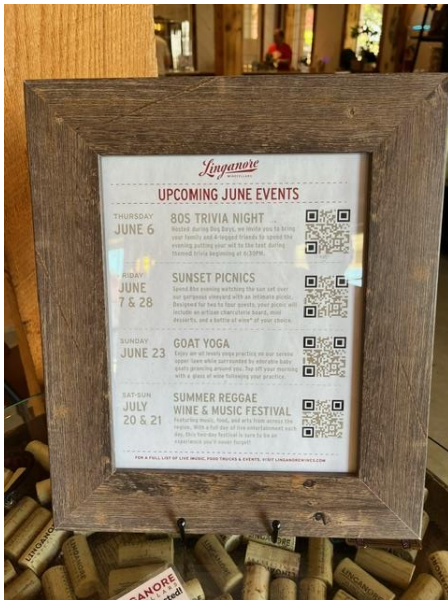 Linganore
WINECELLARS
UPCOMING JUNE EVENTS
THURSDAY
JUNE 6
80S TRIVIA NIGHT
Hosted during Dog Days, we invite you to bring
your family and 4-legged friends to spend the
evening putting your wit to the test during
themed trivia beginning at 6:30PM.
FRIDAY
JUNE
7 & 28
SUNSET PICNICS
Spend the evening watching the sun set over
our gorgeous vineyard with an intimate picnic.
Designed for two to four guests, your picnic will
include an artisan charcuterie board, mini
desserts, and a bottle of wine* of your choice.
SUNDAY
JUNE 23
GOAT YOGA
Enjoy an all levels yoga practice on our serene
upper lawn while surrounded by adorable baby
goats prancing around you. Top off your morning
with a glass of wine following your practice.
SAT-SUN
JULY
20 & 21
SUMMER REGGAE
WINE & MUSIC FESTIVAL
Featuring music, food, and arts from across the
region. With a full day of live entertainment each
day, this two day festival is sure to be an
experience you'll never forget!
FOR A FULL LIST OF LIVE MUSIC, FOOD TRUCKS & EVENTS, VISIT LINGANOREWINES.COM
LINGANORE
LINGANORE